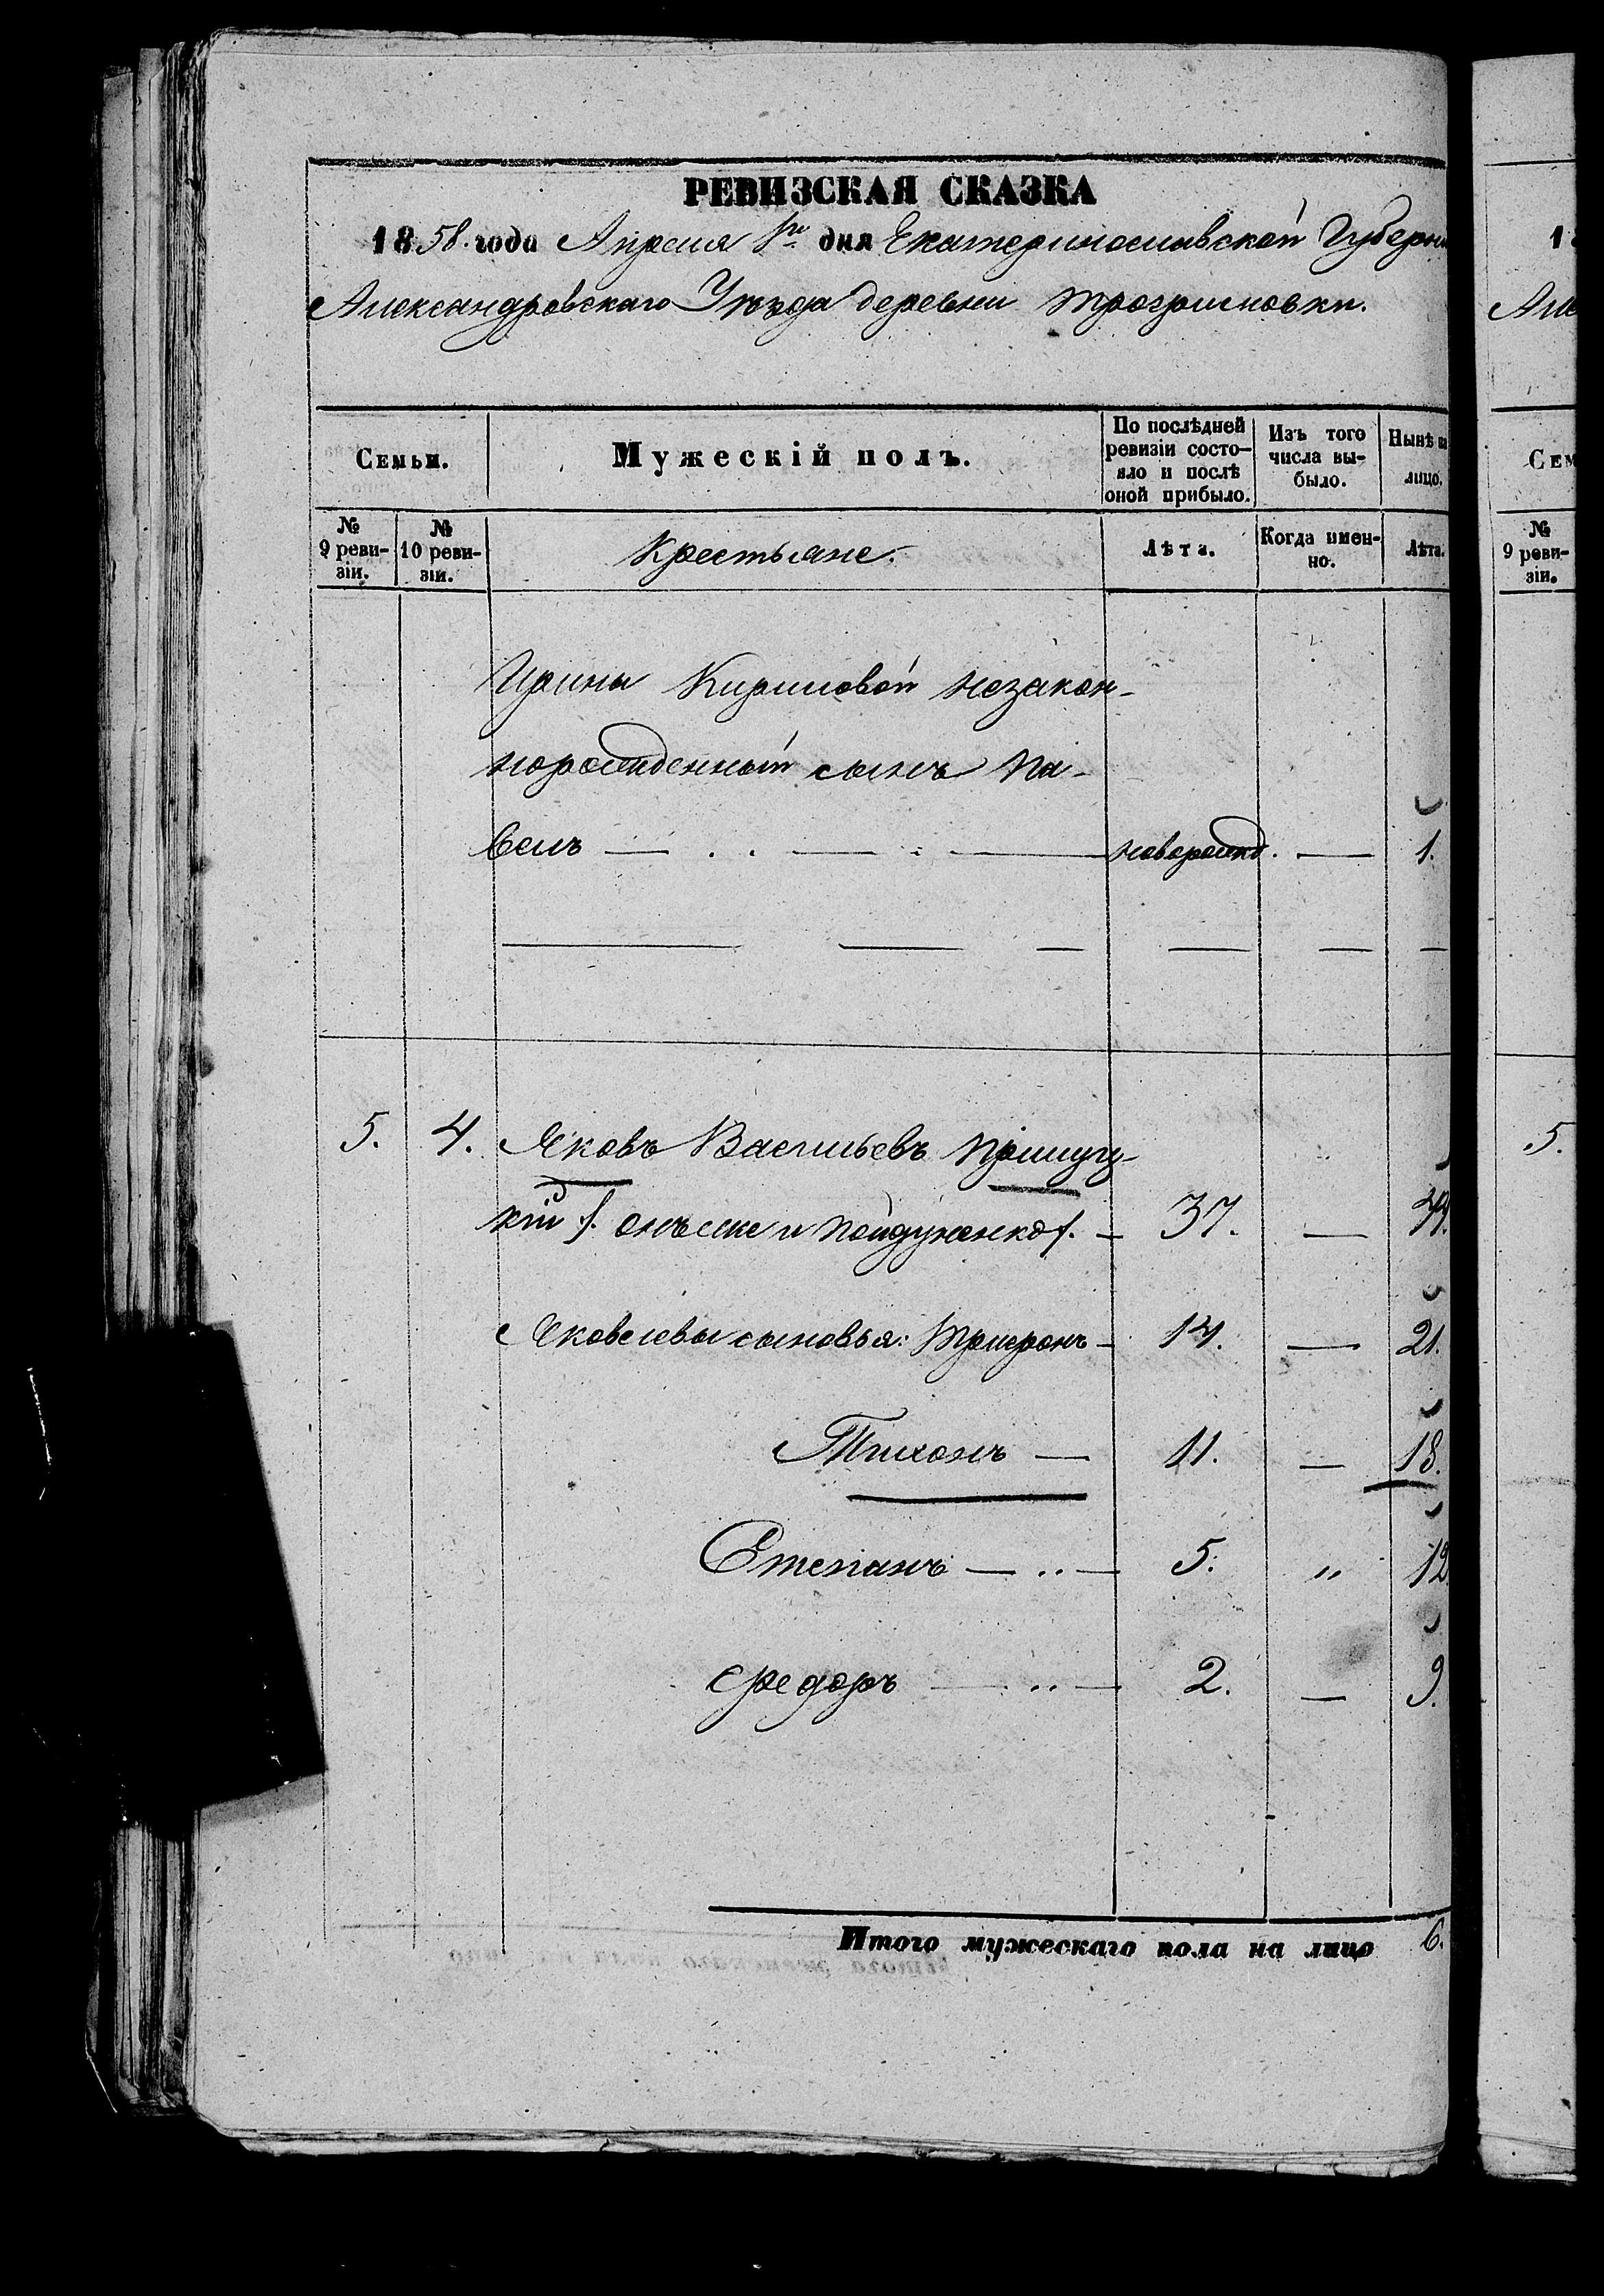 РЕВИЗСКАЯ СКАЗКА
1858. года Апреля 1го дня Екатеринославской Губерни
Александровскаго Уѣзда деревни
Семьи.
Мужескій полъ.
По послѣдней ревизіи состо-
яло и послѣ
оной прибыло.
Изъ того
числа вы-
было.
Нынѣ на
лицо.
№
9 реви-
зіи.
№
10 реви-
зіи.
Крестьяне.
Лѣта.
Когда имен-
но.
Лѣта.
Ирины Кириловой незакон-
норожденный сынъ Па-
велъ — новорожд. — 1.
5. 4. Яковъ Васильевъ
кій /. онъ же и /. — 37. — 44.
Яковлевы сыновья: Трифонъ — 14. — 21.
Тихонъ — 11. — 18.
Степанъ — 5. " 12.
Федоръ — 2. — 9.
Итого мужескаго пола на лицо 6.
1
Але
Сем
№
9 реви-
зіи.
5.